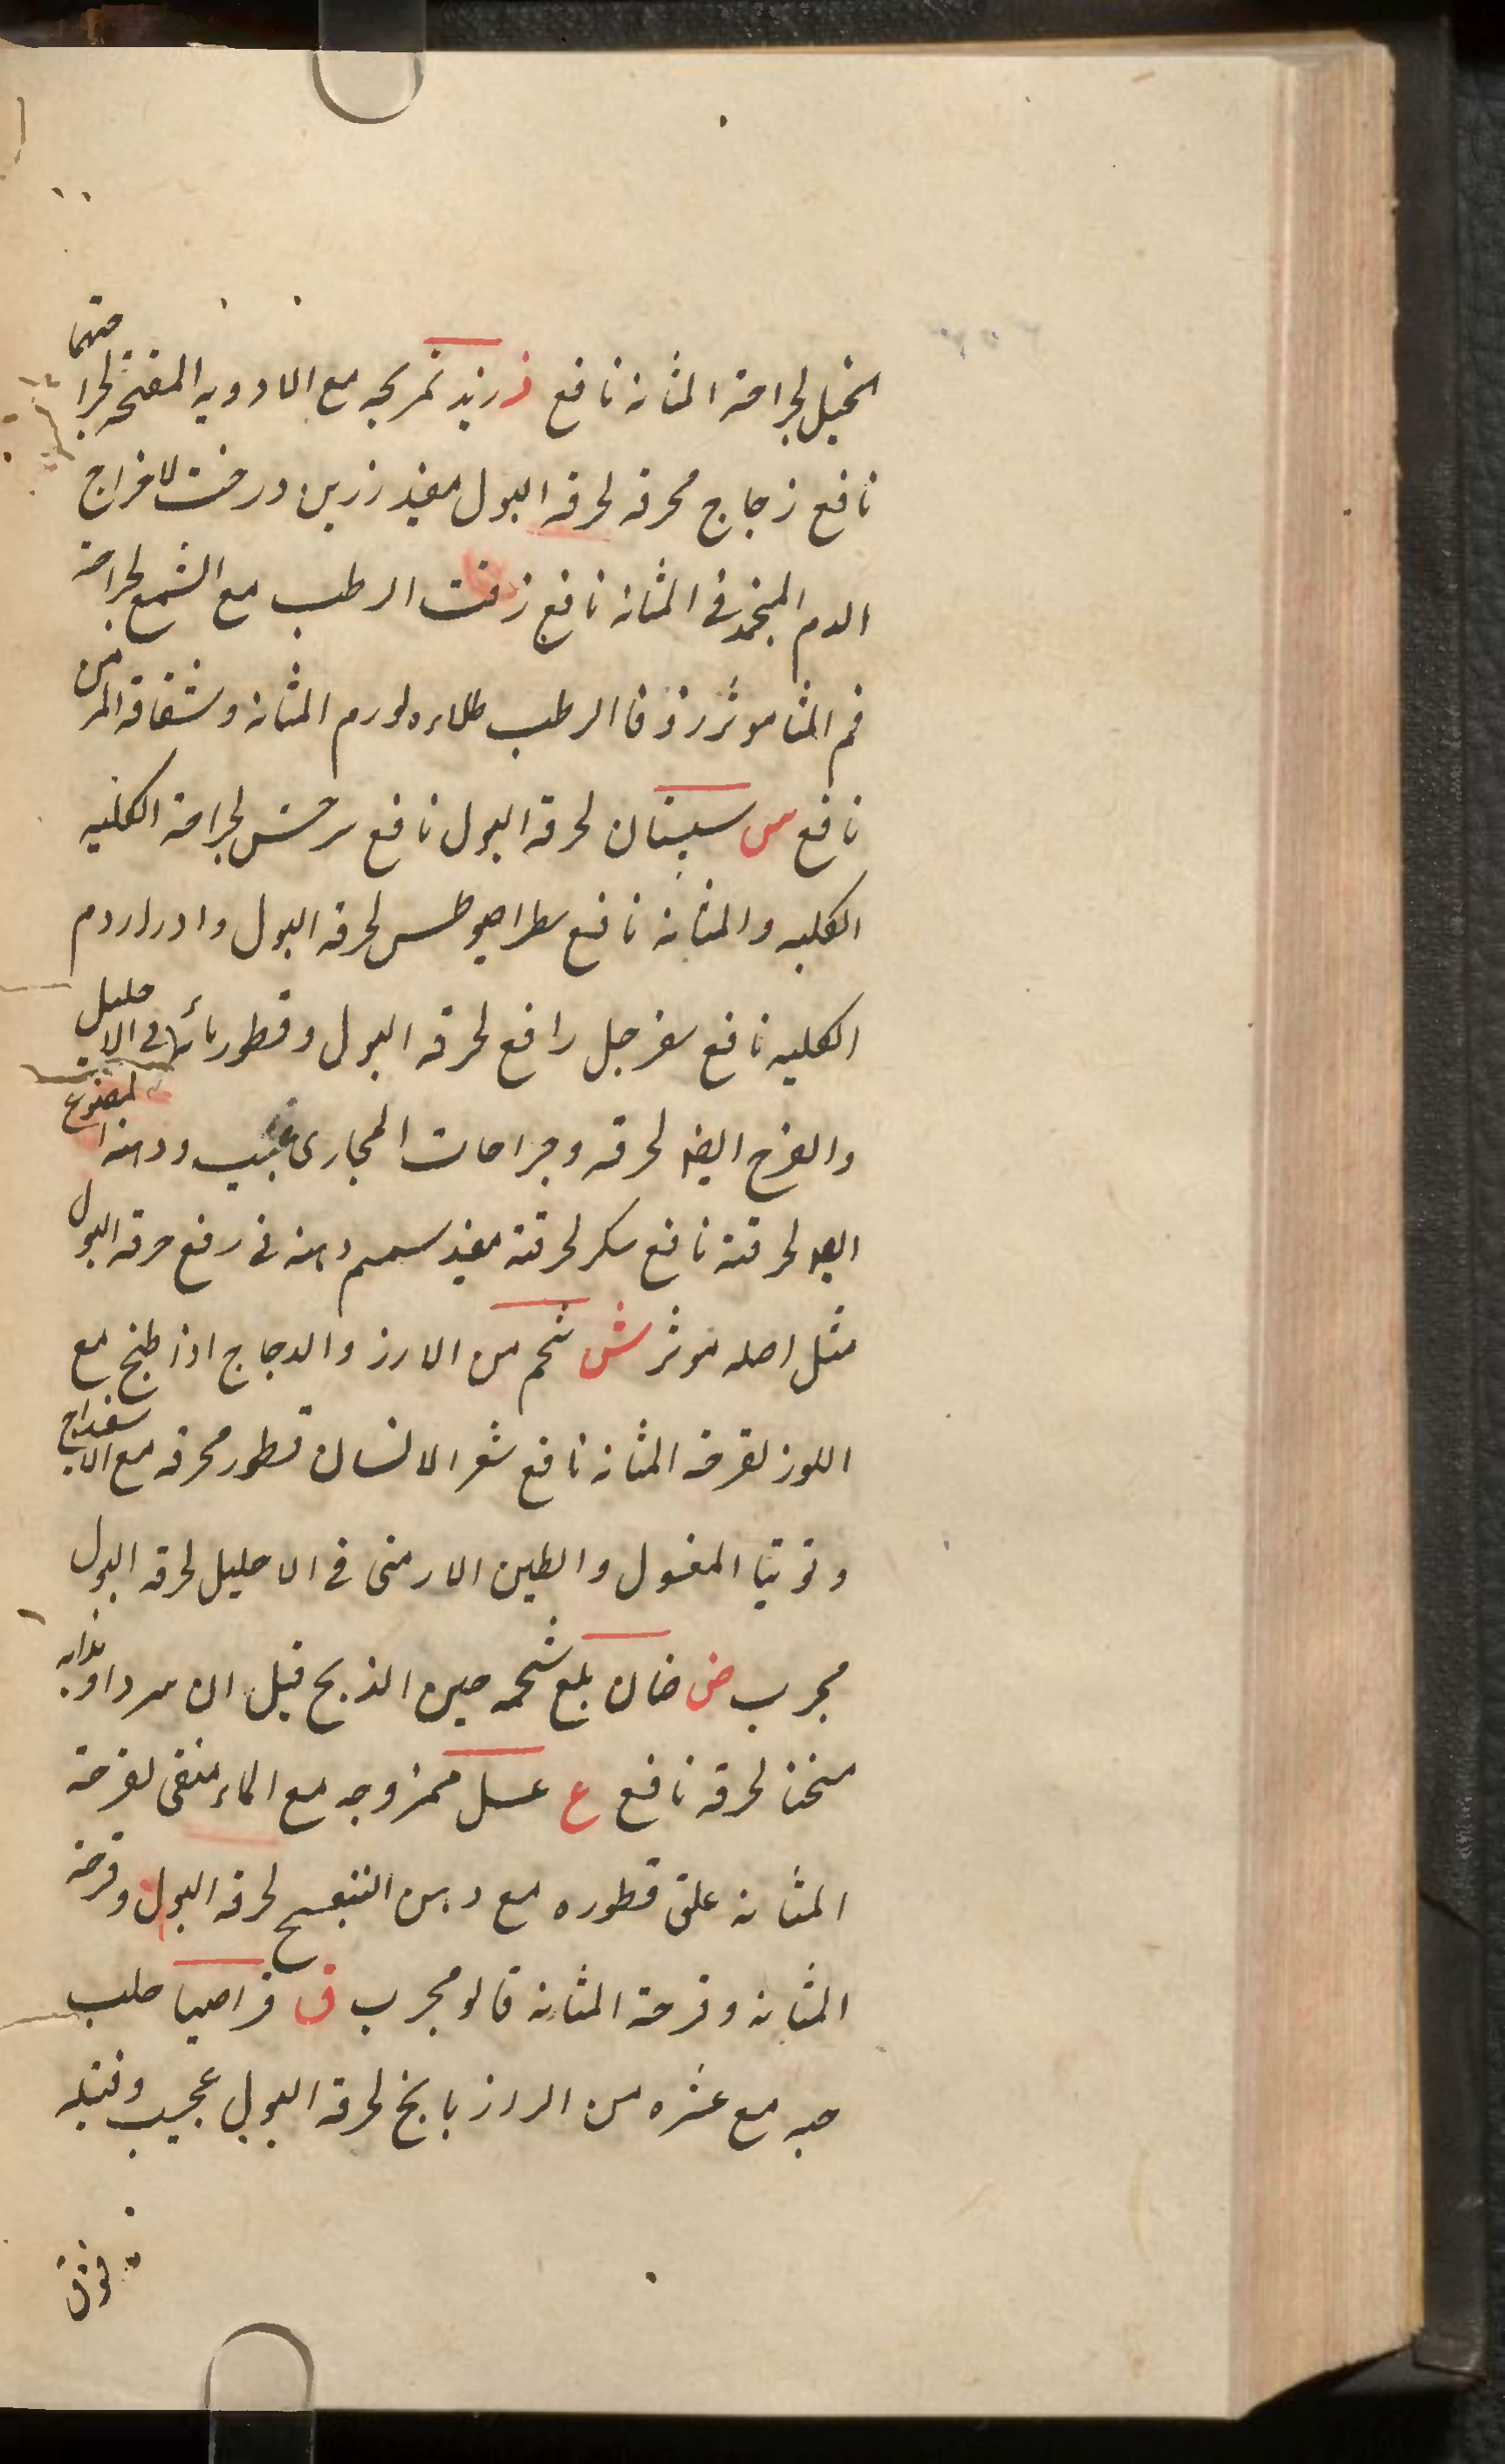 الخيل لجراحة المثانه نافع ز زبد تمريخه مع الادويه المفتحه لجراحتهما
نافع زجاج محرقه لحرقه البول مفيد زرين درخت لاخراج
الدم المنجمد فى المثانه نافع زفت الرطب مع الشمع لجراحة
فم المثا موثر زوفا الرطب طلاءه لورم المثانه وشقاقه المزمن
نافع س سبستان لحرقة البول نافع سرخس لجراحة الكليه
الكليه والمثانه نافع سطراطيوطس لحرقه البول وادرار دم
الكليه نافع سفرجل رافع لحرقه البول وقطور مائها فى الاحليل
والفرج ايضا لحرقه وجراحات المجارى عجيب ودهنه المصنوع
ايضا لحرقته نافع سكر لحرقته مفيد سمسم دهنه فى رفع حرقه البول
مثل اصله موثر ش شحم من الارز والدجاج اذا طبخ مع
اللوز لقرحه المثانه نافع شعر الانسان قطور محرقه مع الاسفيداج
وتوتيا المغسول والطين الارمنى فى الاحليل لحرقه البول
مجرب ض ضان بلع شحمه حين الذبح قبل ان يبرد او
سخنا لحرقه نافع ع عسل ممزوجه مع الماء منقى لقرحة
المثانه علق قطوره مع دهن البنفسج لحرقه البول وقرحة
المثانه وقرحة المثانه قالو مجرب ق قراصيا صلب
حبه مع عشره من الرازيانج لحرقة البول عجيب وفتيله